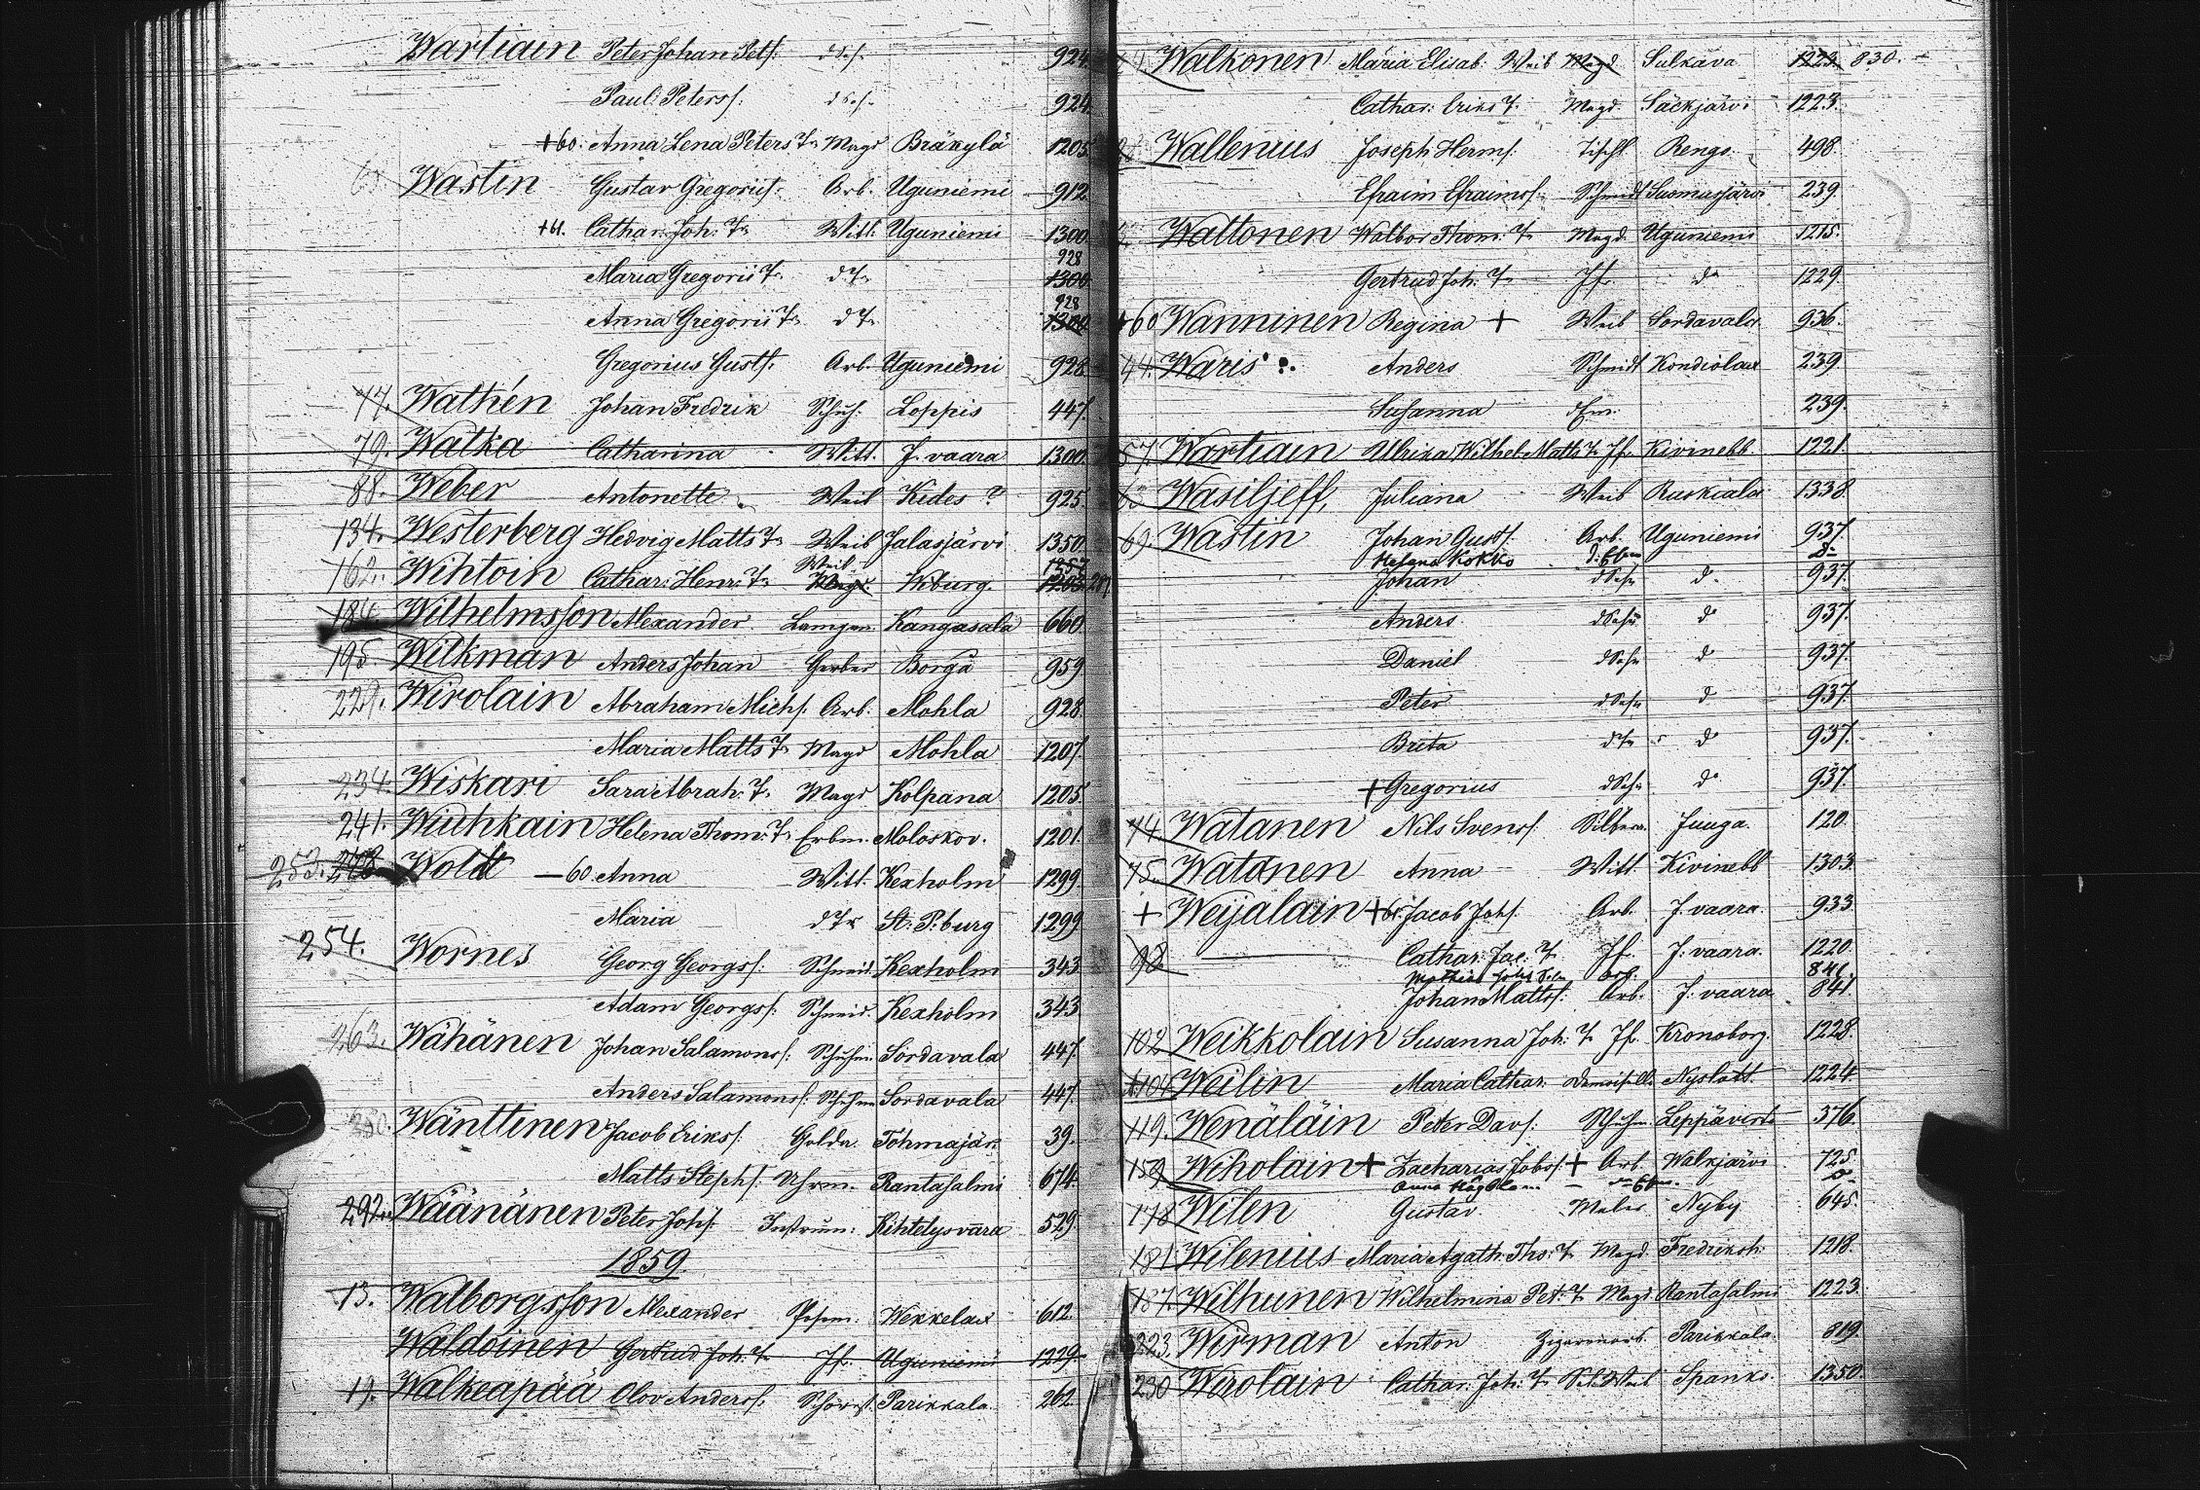 Wartiain Peter Johan Pets. dSs. 924.
Paul Peterss. dSs. 924.
+60. Anna Lena Peters Tr Magd Bräkylä 1205.
Wastin Gustav Gregoriis. Arb. Uguniemi 912.
+61. Cathar. Joh. Tr Witt. Uguniemi 1300.
928
Maria Gregorii Tr dTr 1300.
928
Anna Gregorii Tr dTr 1300.
Gregorius Gusts. Arb. Uguniemi 928.
77. Wathén Johan Fredrik Schuh. Loppis 447.
79. Watka Catharina Witt. J. vaara 1300.
88. Weber Antonette Weib Kides ? 925.
134. Westerberg Hedvig Matts Tr Weib Jalasjärvi 1350.
Weib 1257
162. Wihtoin Cathar. Henr. Tr Magd. Wburg. 1203.
184. Wilhelmsson Alexander Lampen Kangasala 660.
195. Wilkman Anders Johan Gerber Borgå 959.
229. Wirolain Abraham Michs. Arb. Mohla 928.
Maria Matts Tr Magd Mohla 1207.
234. Wiskari Sara Abrah. Tr Magd Kolpana 1205.
241. Wuhkain Helena Thom. Tr Erbm. Moloskov. 1201.
253. 248 Woldt —60. Anna Witt. Kexholm 1299.
Maria dTr St. P.burg 1299.
254. Wornes Georg Georgs. Schneid. Kexholm 343.
Adam Georgs. Schneid. Kexholm 343.
263. Wähänen Johan Salamons. Schuhm. Sordavala 447.
Anders Salamons. Schuhm Sordavala 447.
280. Wänttinen Jacob Eriks. Golda. Tohmajär. 39.
Matts Stephs. Uhrm. Rantasalmi 674.
292. Wäänänen Peter Johs. Instrum. Kihtelysvara 529.
1859.
13. Walborgsson Alexander Posem. Wekkelax 612.
Waldoinen Gertrud Joh. Tr Jf. Uguniemi 1229.
19. Walkeapää Olov Anderss. Schornst. Parikkala. 262.
Walkonen Maria Elisab. Weib Magd Sulkava 1223. 830.
Cathar. Eriks T. Magd. Säckjärvi 1223.
Wallenius Joseph Herms. Tischl. Rengo. 498.
Efraim Efraims. Schmidt Suomusjärvi 239.
Waltonen Walbor Thom. T. Magd. Uguniemi 1215.
Gertrud Joh. Tr Jf. do 1229.
+60 Wanninen Regina + Weib Sordavala 936.
44. Waris Anders Schmidt Kondiolax 239.
Susanna dEm. 239.
57. Wartiain Ulrika Wilhel. Matts T. Jf. Kivinebb. 1221.
Wasiljeff, Juliana Weib Ruskiala 1338
69. Wastin Johan Gusts. Arb. Uguniemi 937.
Helena Kokko d. Ehm Do
Johan dSohn do 937.
Anders dSohn do 937.
Daniel dSohn do 937.
Peter dSohn do 937.
Brita dTr do 937.
+ Gregorius dSohn do 937.
74. Watanen Nils Svens. Silbera. Juuga. 120.
75. Watanen Anna Witt. Kivinebb 1303.
+ Weijalain +61. Jacob Johs. Arb. J. vaara 933.
98 Cathar. Jac. T. Jf. J. vaara. 1220.
Mathias Johs Sohn Arb. 841.
Johan Matts. Arb. J. vaara 841.
102 Weikkolain Susanna Joh. T. Jf. Kronoborg. 1228.
+104. Weilin Maria Cathar. Demoisell. Nyslott. 1224.
119. Wenäläin Peter Davs. Schuhm. Leppävirta 376.
159 Wiholain + Zacharias Jobs. + Arb. Walkjärvi 725.
Anna Do
178 Wilen Gustav Maler Nyby 645.
181. Wilenius Maria Agath. Ths. T. Magd. Fredriksh. 1218.
187. Wilhunen Wilhelmina Pet. T. Magd. Rantasalmi 1223.
223. Wirman Anton Zigarrenarb. Parikkala. 819.
230 Wirolain Cathar. Joh. Tr Sol. Weib Spanko. 1350.